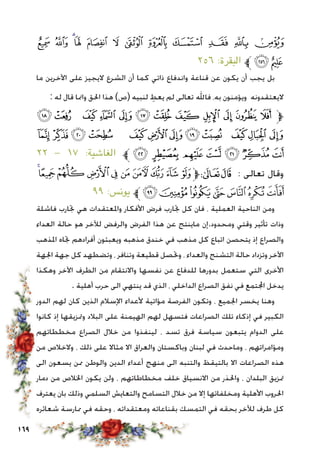 وَيُؤْمِنُ بِاللَّهِ فَقَدِ اسْتَمْسَكَ بِالْعُرْوَةِ الْوُثْقَىٰ لَا انْفِصَامَ لَهَا وَاللَّهُ سَمِيعٌ
عَلِيمٌ ﴿٢٥٦﴾ البقرة: ٢٥٦
بل يجب أن يكون عن قناعة واندفاع ذاتي كما أن الشرع لايجيز على الآخرين ما
لايعتقدونه ويؤمنون به. فالله تعالى لم يعط لنبيه (ص) هذا الحق وإنما قال له :
﴿ أَفَلَا يَنْظُرُونَ إِلَى الْإِبِلِ كَيْفَ خُلِقَتْ ﴿١٧﴾ وَإِلَى السَّمَاءِ كَيْفَ رُفِعَتْ ﴿١٨﴾
وَإِلَى الْجِبَالِ كَيْفَ نُصِبَتْ ﴿١٩﴾ وَإِلَى الْأَرْضِ كَيْفَ سُطِحَتْ ﴿٢٠﴾ فَذَكِّرْ إِنَّمَا
أَنْتَ مُذَكِّرٌ ﴿٢١﴾ لَسْتَ عَلَيْهِمْ بِمُصَيْطِرٍ ﴿٢٢﴾ الغاشية: ١٧ – ٢٢
وقال تعالى : قَالَ تَعَالَىٰ: ﴿ وَلَوْ شَاءَ رَبُّكَ لَآمَنَ مَنْ فِي الْأَرْضِ كُلُّهُمْ جَمِيعًا
أَفَأَنْتَ تُكْرِهُ النَّاسَ حَتَّىٰ يَكُونُوا مُؤْمِنِينَ ﴿٩٩﴾ يونس: ٩٩
ومن الناحية العملية . فان كل تجارب فرض الأفكار والمعتقدات هي تجارب فاشلة
وذات تأثير وقتي ومحدود.إن ماينتج عن هذا الفرض والرفض للآخر هو حالة العداء
والصراع إذ يتحصن اتباع كل مذهب في خندق مذهبه ويعبئون أفرادهم تجاه المذهب
الآخر وتزداد حالة التشنج والعداء . وتحصل قطيعة وتنافر . وتضطهد كل جهة الجهة
الأخرى التي ستعمل بدورها للدفاع عن نفسها والانتقام من الطرف الآخر وهكذا
يدخل المجتمع في نفق الصراع الداخلي . الذي قد ينتهي الى حرب أهلية .
وهنا يخسر الجميع . وتكون الفرصة مؤاتية لأعداء الإسلام الذين كان لهم الدور
الكبير في إذكاء تلك الصراعات فتسهل لهم الهيمنة على البلاد وتمزيقها إذ كانوا
على الدوام يتبعون سياسة فرق تسد . لينفذوا من خلال الصراع مخططاتهم
ومؤامراتهم . وماحدث في لبنان وباكستان والعراق الا مثالا على ذلك . ولاخلاص من
هذه الصراعات الا باليتقظ والتنبه الى منهج أعداء الدين والوطن ممن يسعون الى
تمزيق البلدان . والحذر من الانسياق خلف مخططاتهم . ولن يكون الخلاص من دمار
الحروب الأهلية ومخلفاتها إلا من خلال التسامح والتعايش السلمي وذلك بان يعترف
كل طرف للآخر بحقه في التمسك بقناعاته ومعتقداته . وحقه في ممارسة شعائره
١٦٩